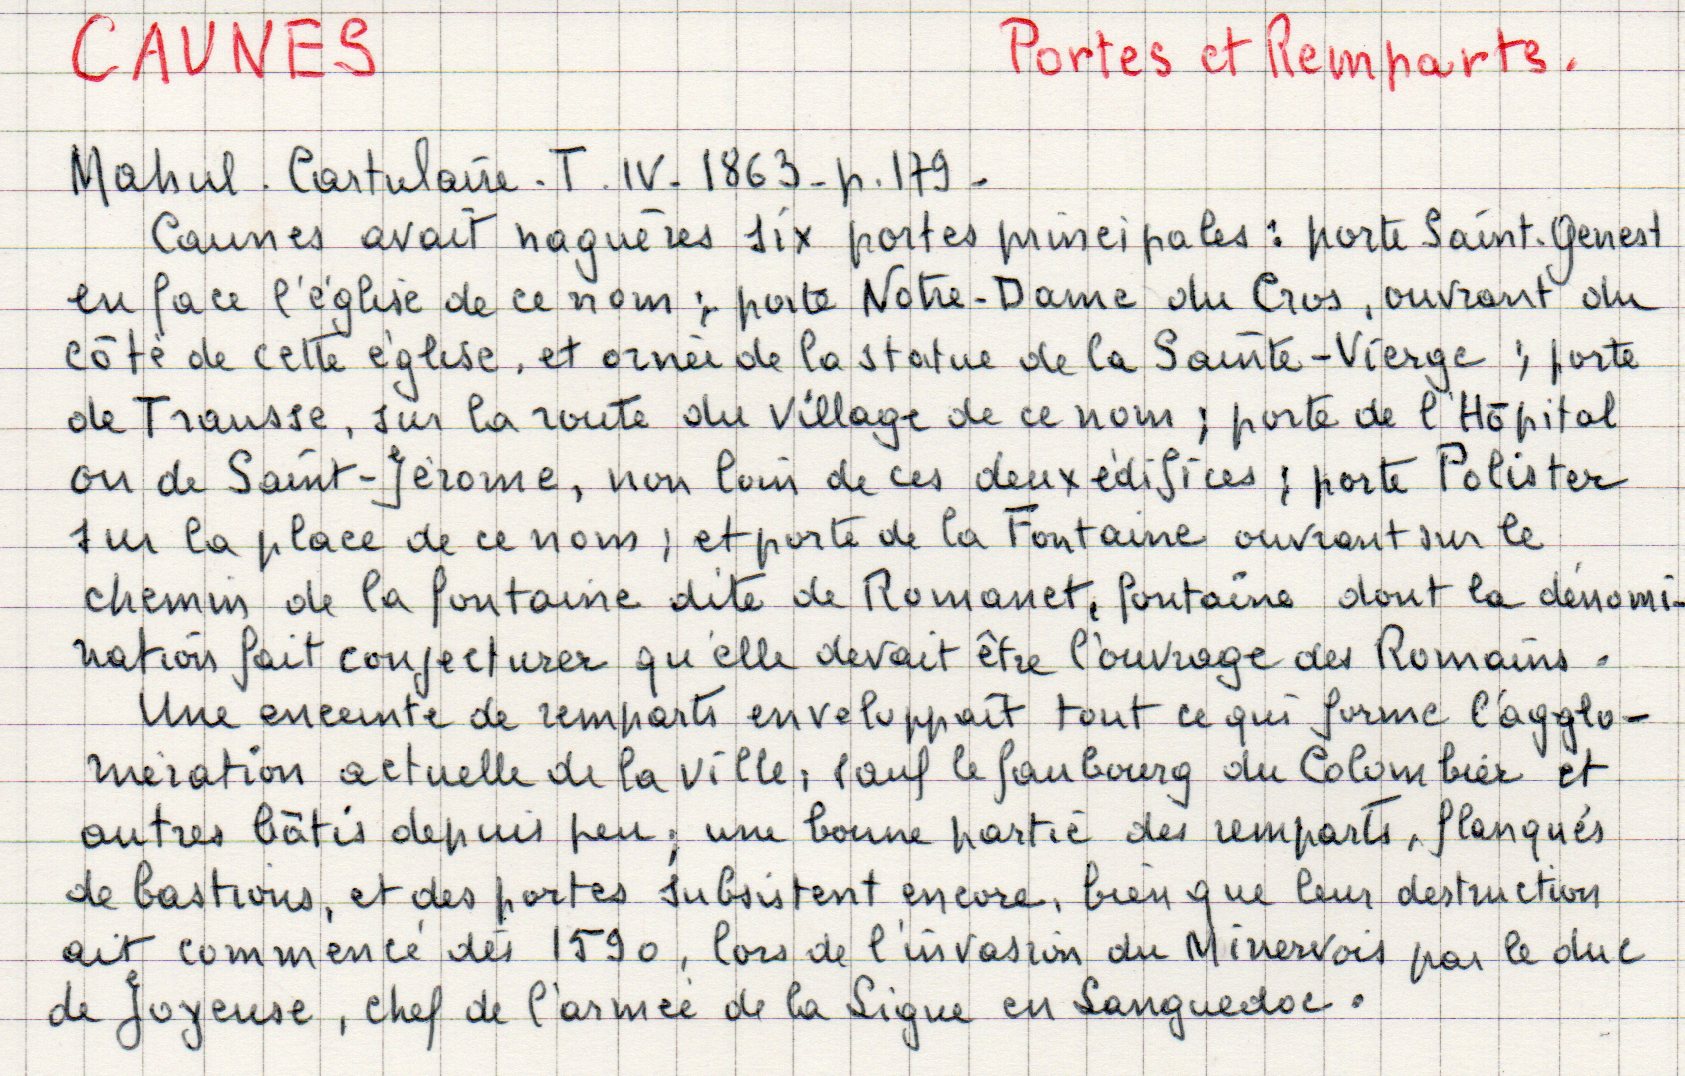 CAUNES Portes et Remparts.
Mahul. Cartulaire. T. IV. 1863 - p. 179 -
Caunes avait naguères six portes principales : porte Saint-Genest
en face l'église de ce nom ; porte Notre-Dame du Cros, ouvrant du
côté de cette église, et ornée de la statue de la Sainte-Vierge ; porte
de Trausse, sur la route du village de ce nom ; porte de l'Hôpital
ou de Saint-Jérome, non loin de ces deux édifices ; porte Polister
sur la place de ce nom ; et porte de la Fontaine ouvrant sur le
chemin de la fontaine dite de Romanet, fontaine dont la dénomi-
nation fait conjecturer qu'elle devait être l'ouvrage des Romains.
Une enceinte de remparts enveloppait tout ce qui forme l'agglo-
mération actuelle de la ville, sauf le faubourg du Colombier et
autres bâtis depuis peu ; une bonne partie des remparts, flanqués
de bastions, et des portes subsistent encore, bien que leur destruction
ait commencé dès 1590, lors de l'invasion du Minervois par le duc
de Joyeuse, chef de l'armée de la Ligue en Languedoc.